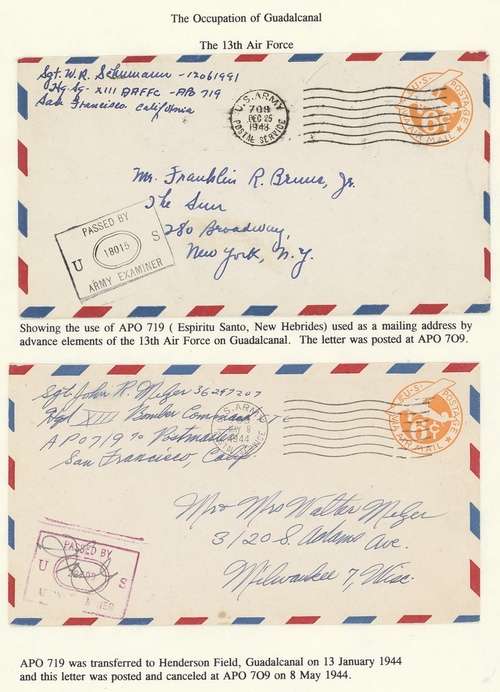 The Occupation of Guadalcanal
The 13th Air Force
Sgt. W. R. Schumann - 12061991
Hq. Sq. - XIII AAFFC - APO 719
San Francisco, California
U.S. ARMY
709
DEC 25
1943
POSTAL SERVICE
U.S. POSTAGE
6¢
VIA AIR MAIL
Mr. Franklin R. Bruns, Jr.
The Sun
280 Broadway,
New York, N.Y.
PASSED BY
U 18015 S
ARMY EXAMINER
Showing the use of APO 719 ( Espiritu Santo, New Hebrides) used as a mailing address by
advance elements of the 13th Air Force on Guadalcanal. The letter was posted at APO 7O9.
Sgt John R. Melger 36297207
Hqd XIII Bomber Command
APO 719 % Postmaster
San Francisco, Calif.
U.S. ARMY
1944
U.S. POSTAGE
6¢
VIA AIR MAIL
Mr & Mrs Walter Melger
3120 S. Adams Ave.
Milwaukee 7, Wisc.
PASSED BY
U S
ARMY EXAMINER
APO 719 was transferred to Henderson Field, Guadalcanal on 13 January 1944
and this letter was posted and canceled at APO 7O9 on 8 May 1944.